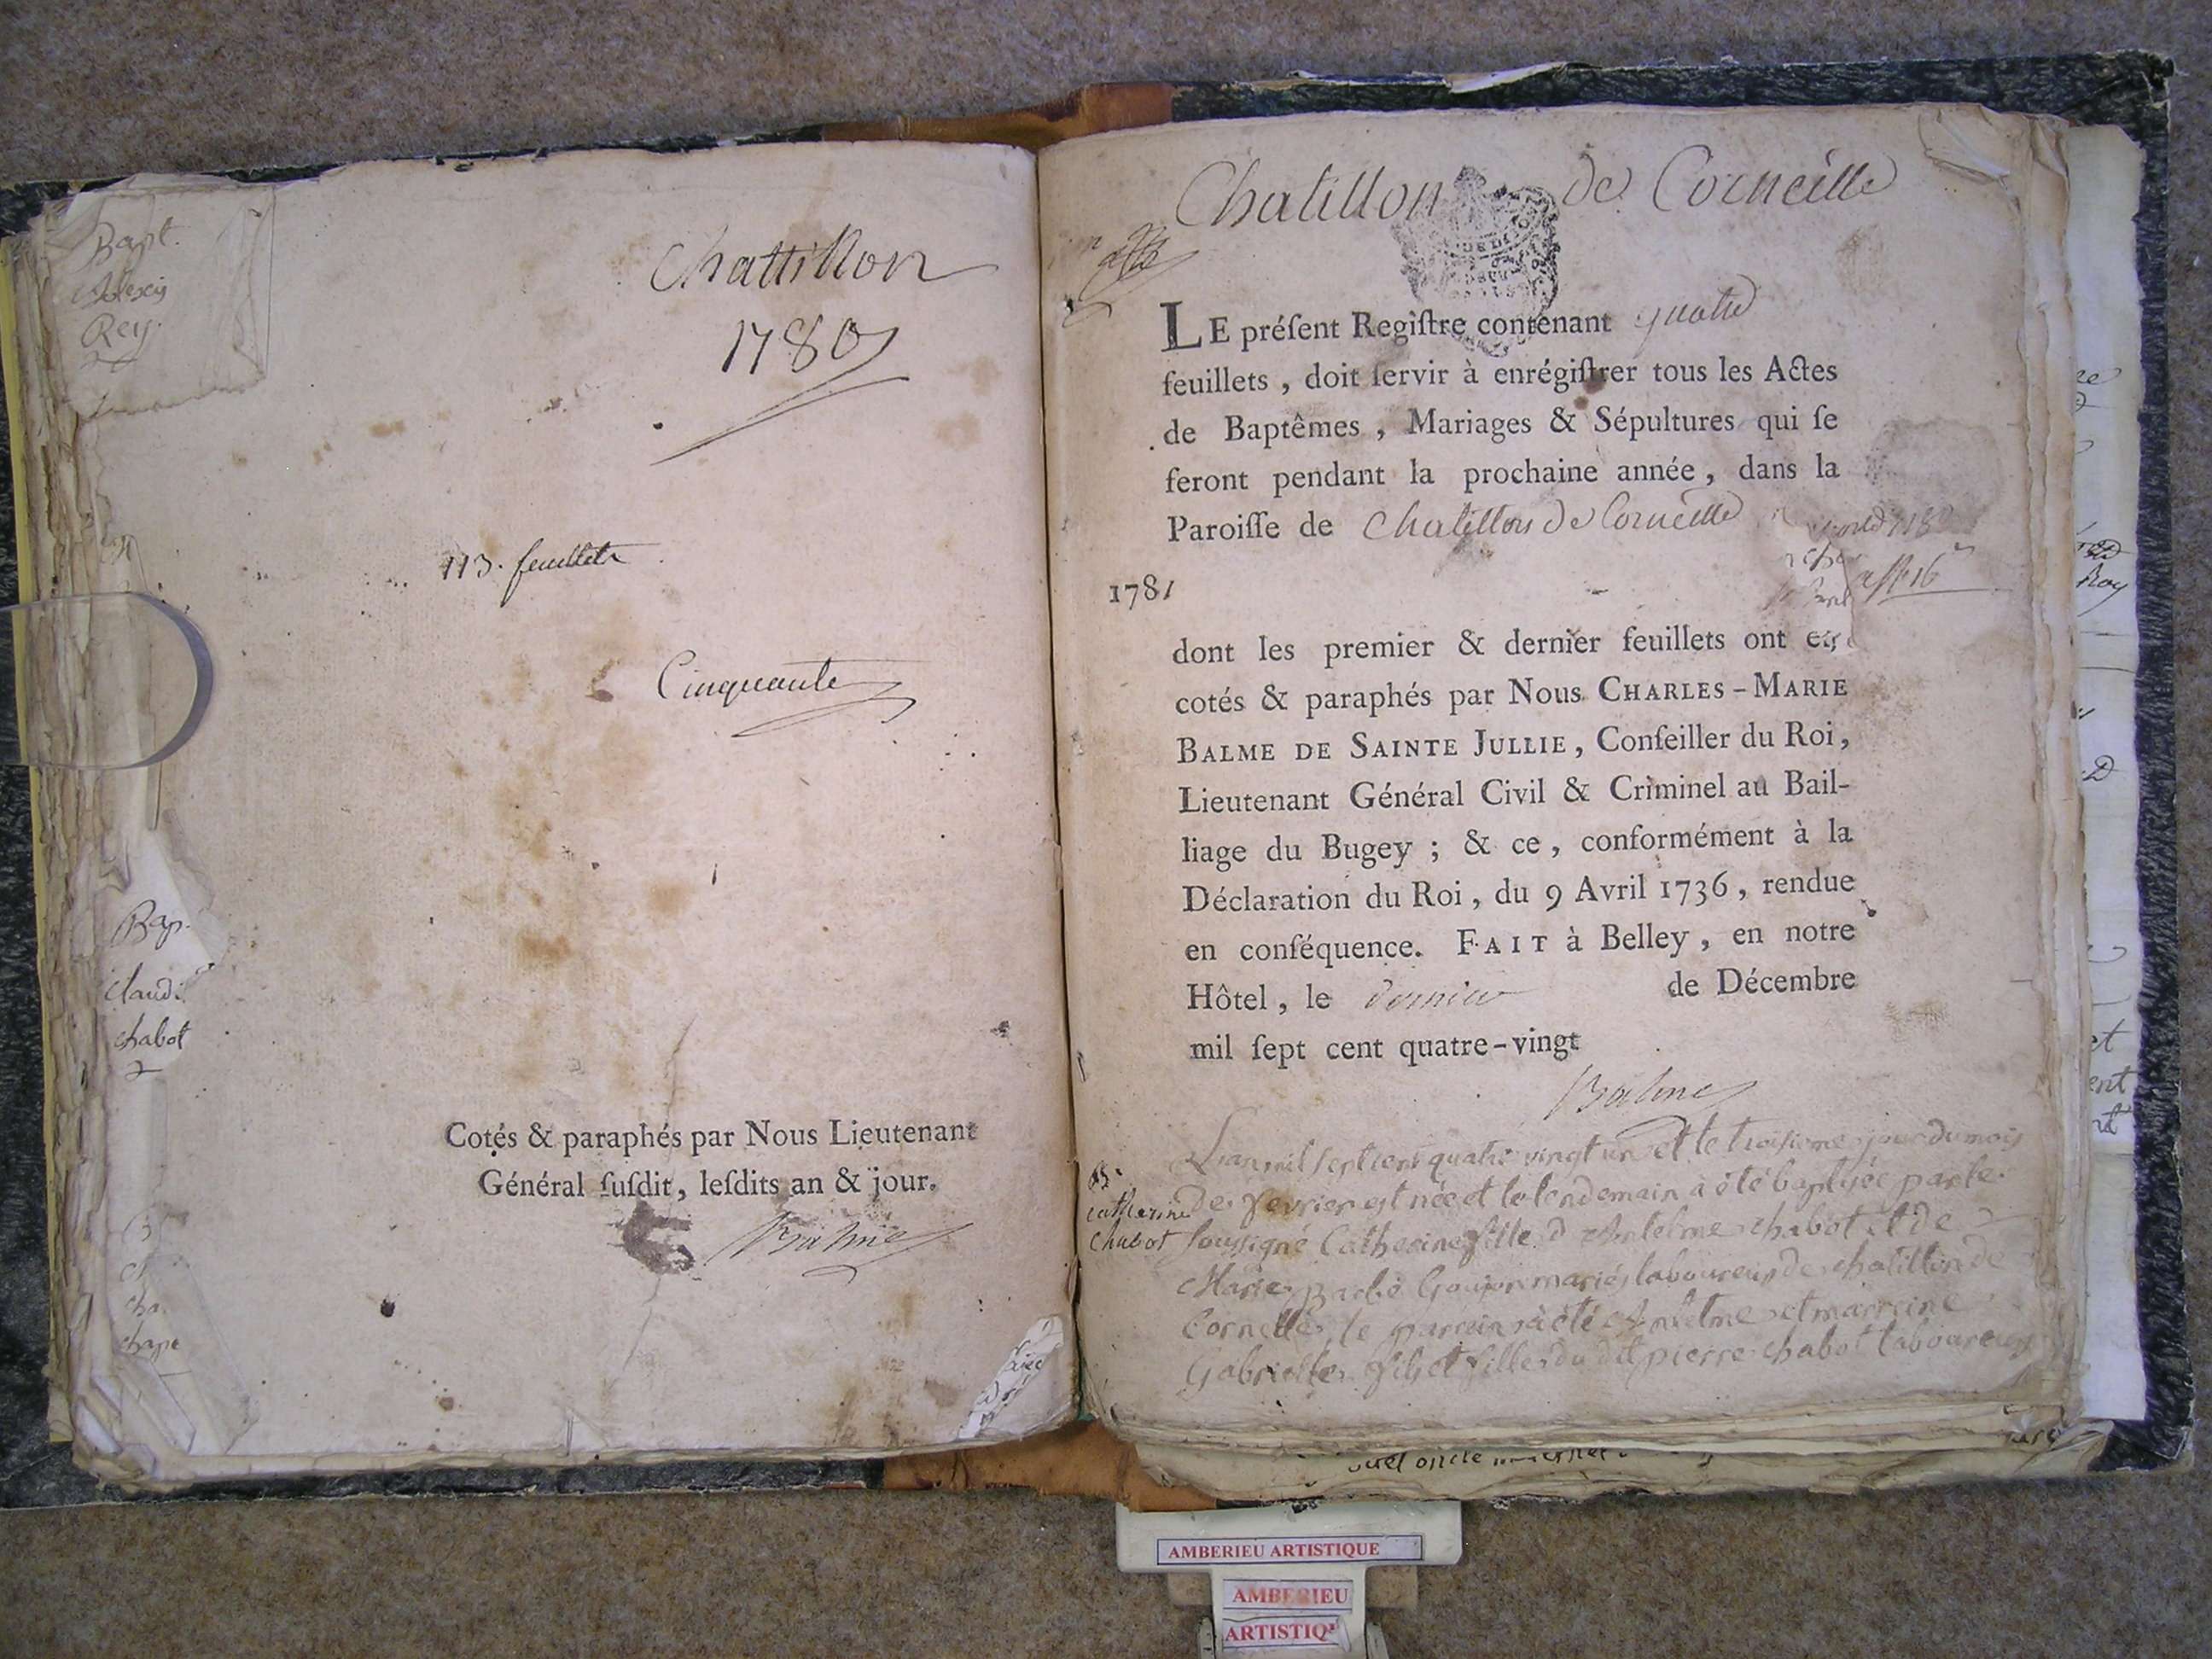 Bapt.
Alexis
Rey.
Chattillon
1780
113. feuillets
Cinquante
Bap.
Claudi
chabot
cha
chape
Cotés & paraphés par Nous Lieutenant
Général ſuſdit, leſdits an & jour.
Balme
Chatillon de Corneille
LE préſent Regiſtre contenant quatre
feuillets, doit ſervir à enrégiſtrer tous les Actes
de Baptêmes, Mariages & Sépultures qui ſe
feront pendant la prochaine année, dans la
Paroiſſe de Chatillon de Corneille
1781
dont les premier & dernier feuillets ont été
cotés & paraphés par Nous CHARLES-MARIE
BALME DE SAINTE JULLIE, Conſeiller du Roi,
Lieutenant Général Civil & Criminel au Bail-
liage du Bugey ; & ce, conformément à la
Déclaration du Roi, du 9 Avril 1736, rendue
en conſéquence. FAIT à Belley, en notre
Hôtel, le dernier de Décembre
mil ſept cent quatre-vingt
Balme
B.
catherine
Chabot
L'an mil sept cent quatre vingt un et le troisieme jour du mois
de fevrier est née et le lendemain à été baptisée par le
soussigné Catherine fille d'Anthelme chabot et de
Marie Goujon mariés laboureurs de chatillon de
Cornelle, le parrain à été Anthelme et marraine
Gabrielle fils et fille du dit pierre chabot laboureur
AMBERIEU ARTISTIQUE
AMBERIEU
ARTISTIQ